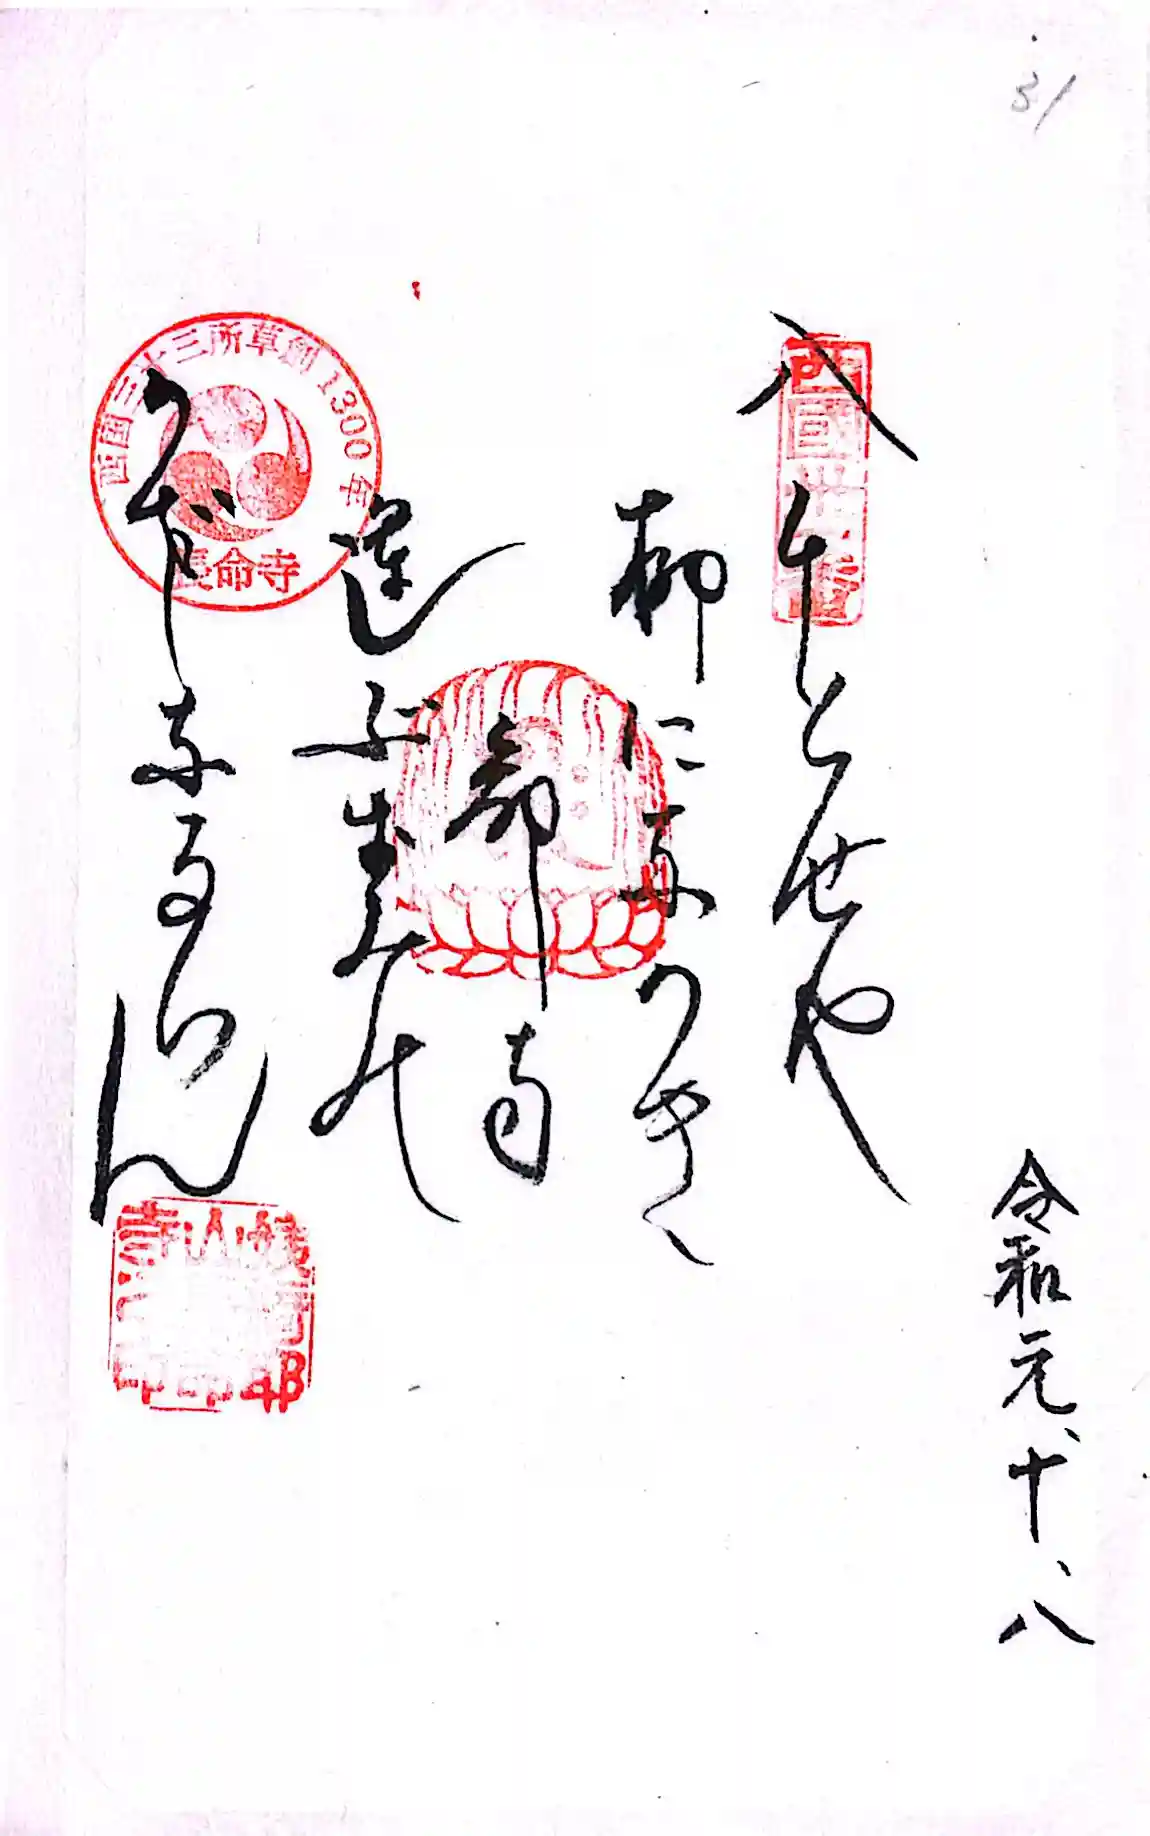 31
西国三十三所草創1300年
長命寺
西國卅一番
八千とせや
柳にながき
命寺
運ぶ歩みの
かざしなるらん
令和元、十、八